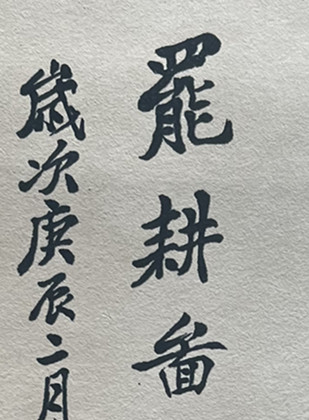 罷耕啚
歲次庚辰二月